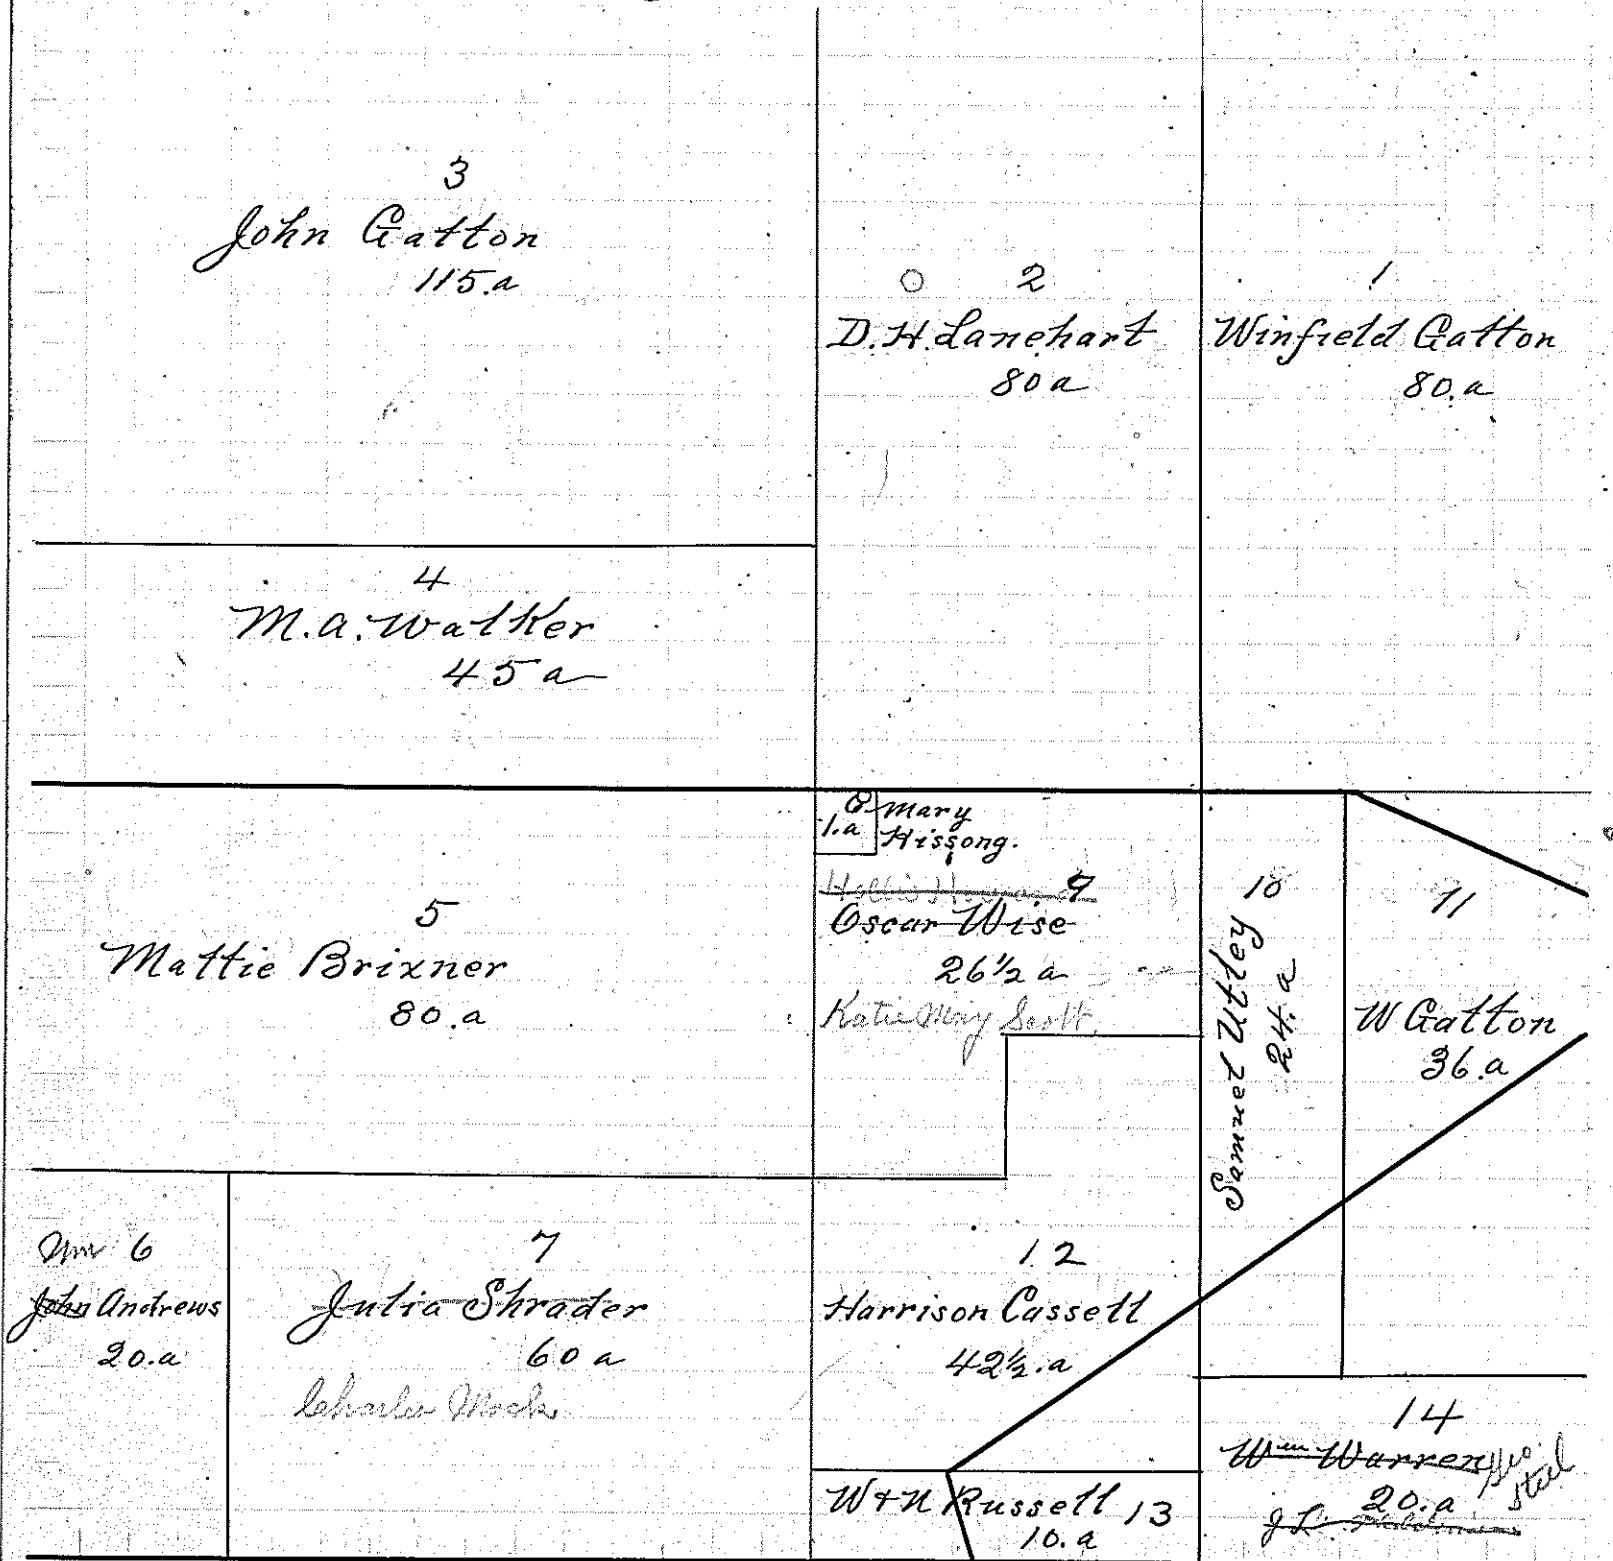 3
John Gatton
115.a
2
D. H. Lanehart
80 a
1
Winfield Gatton
80.a
4
M. A. Walker
45 a
8
1.a
Mary
Hissong.
9
Oscar Wise
26 1/2 a
Katie May Scott.
5
Mattie Brixner
80.a
10
24 a
11
W Gatton
36.a
6
John Andrews
20.a
7
Julia Shrader
60 a
Charles Mock
12
Harrison Cassell
42 1/2.a
W & N Russell 13
10.a
14
Wm Warren
20.a